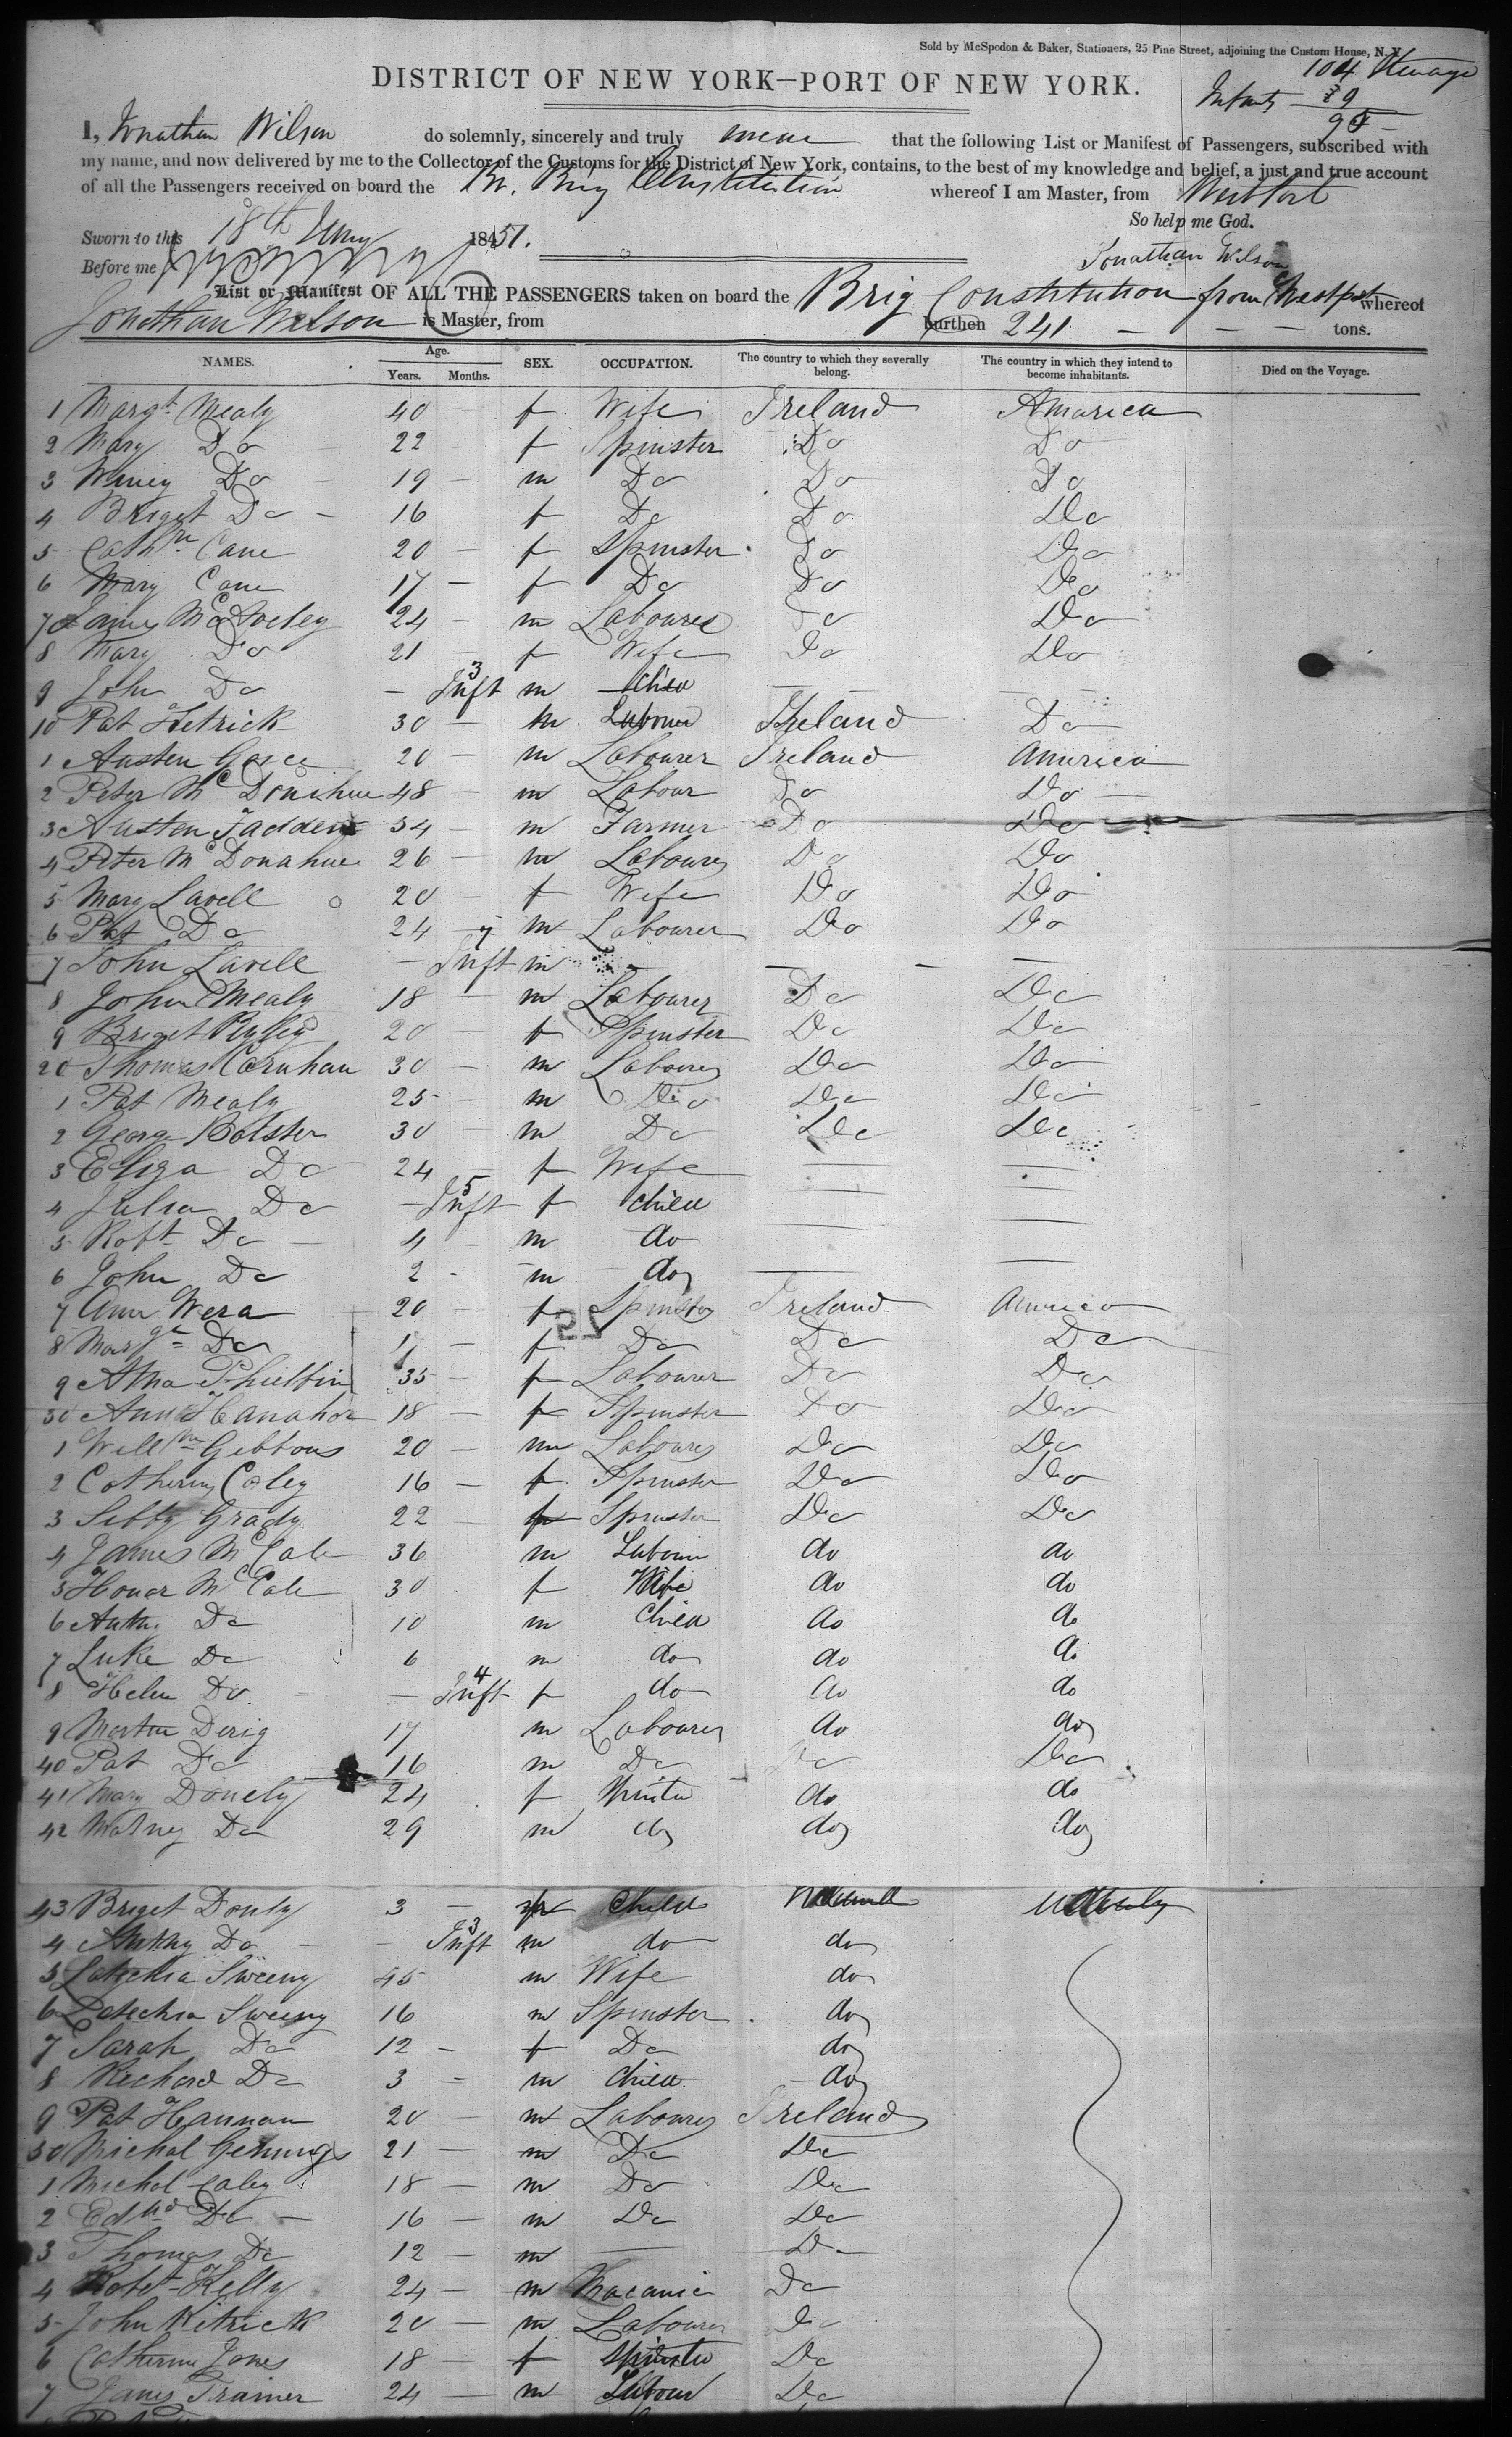 Sold by McSpedon & Baker, Stationers, 25 Pine Street, adjoining the Custom House, N. Y.
DISTRICT OF NEW YORK—PORT OF NEW YORK.
104 Steerage
Infants 9
95
I, Jonathan Wilson do solemnly, sincerely and truly swear that the following List or Manifest of Passengers, subscribed with
my name, and now delivered by me to the Collector of the Customs for the District of New York, contains, to the best of my knowledge and belief, a just and true account
of all the Passengers received on board the Br. Brig Constitution whereof I am Master, from Westport
So help me God.
Sworn to this 18th 1851.
Jonathan Wilson
Before me
List or Manifest OF ALL THE PASSENGERS taken on board the Brig Constitution from Westport whereof
Jonathan Wilson is Master, from burthen 241 tons.
NAMES. Age. Years. Months. SEX. OCCUPATION. The country to which they severally belong. The country in which they intend to become inhabitants. Died on the Voyage.
1 Margt Mealy 40 f Wife Ireland America
2 Mary Do 22 f Spinster Do Do
3 Winey Do 19 m Do Do Do
4 Briget Do 16 f Do Do Do
5 Cathn Cane 20 f Spinster Do Do
6 Mary Cane 17 f Do Do Do
7 James 24 m Labourer Do Do
8 Mary Do 21 f Wife Do Do
9 John Do 3 Inft m Child
10 Pat Hetrick 30 m Labourer Ireland Do
1 Austen 20 m Labourer Ireland America
2 Peter McDonihue 48 m Labour Do Do
3 Austen Fadden 34 m Farmer Do Do
4 Peter McDonahue 26 m Labourer Do Do
5 Mary Lavell 20 f Wife Do Do
6 Pat Do 24 m Labourer Do Do
7 John Lavell 7 Inft m
8 John Mealy 18 m Labourer Do Do
9 Briget Ryley 20 f Spinster Do Do
20 Thomas Carnhan 30 m Labourer Do Do
1 Pat Mealy 25 m Do Do Do
2 George Bolster 30 m Do Do Do
3 Eliza Do 24 f Wife
4 Julia Do 5 Inft f Child
5 Robt Do 4 m do
6 John Do 2 m do
7 Ann Wera 20 f Spinster Ireland America
8 Margt Do f Do Do Do
9 Philbin 35 f Labourer Do Do
30 Ann 18 f Spinster Do Do
1 Willm Gibbons 20 m Labourer Do Do
2 Cathering Coley 16 f Spinster Do Do
3 Sibby Grady 22 f Spinster Do Do
4 James McCale 36 m Labour do do
5 Honor McCale 30 f Wife do do
6 Antny Do 10 m Child do do
7 Luke Do 6 m do do do
8 Helen Do 4 Inft f do do do
9 Martin Derig 17 m Labourer do do
40 Pat Do 16 m Do Do Do
41 Mary Donely 24 f Spinster do do
42 Do 29 m do do do
43 Briget Donly 3 f Child
4 Antny Do 3 Inft m do do
5 Letechia Sweeny 45 m Wife do
6 Letechia Sweeny 16 m Spinster do
7 Sarah Do 12 f Do do
8 Richard Do 3 m Child do
9 Pat Hannan 20 m Labourer Ireland
50 Michal Gennings 21 m Do Do
1 Michal Caley 18 m Do Do
2 Edwd Do 16 m Do Do
3 Thomas Do 12 m Do
4 Robt Kelly 24 m Macanic Do
5 John Kitrick 20 m Labourer Do
6 Catherine Jones 18 f Spinster Do
7 James Trainer 24 m Labour Do